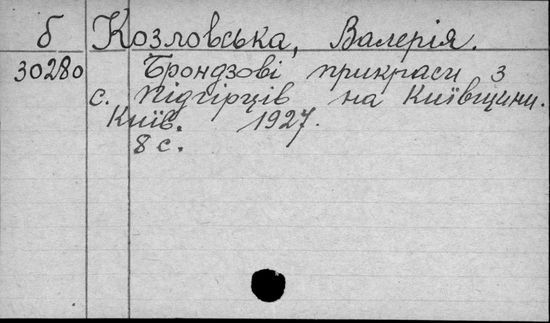 б Козловська, Валерія.
30280 Брондзові прикраси з
с. Підгірців на Київщини.
Київ. 1927.
8 с.